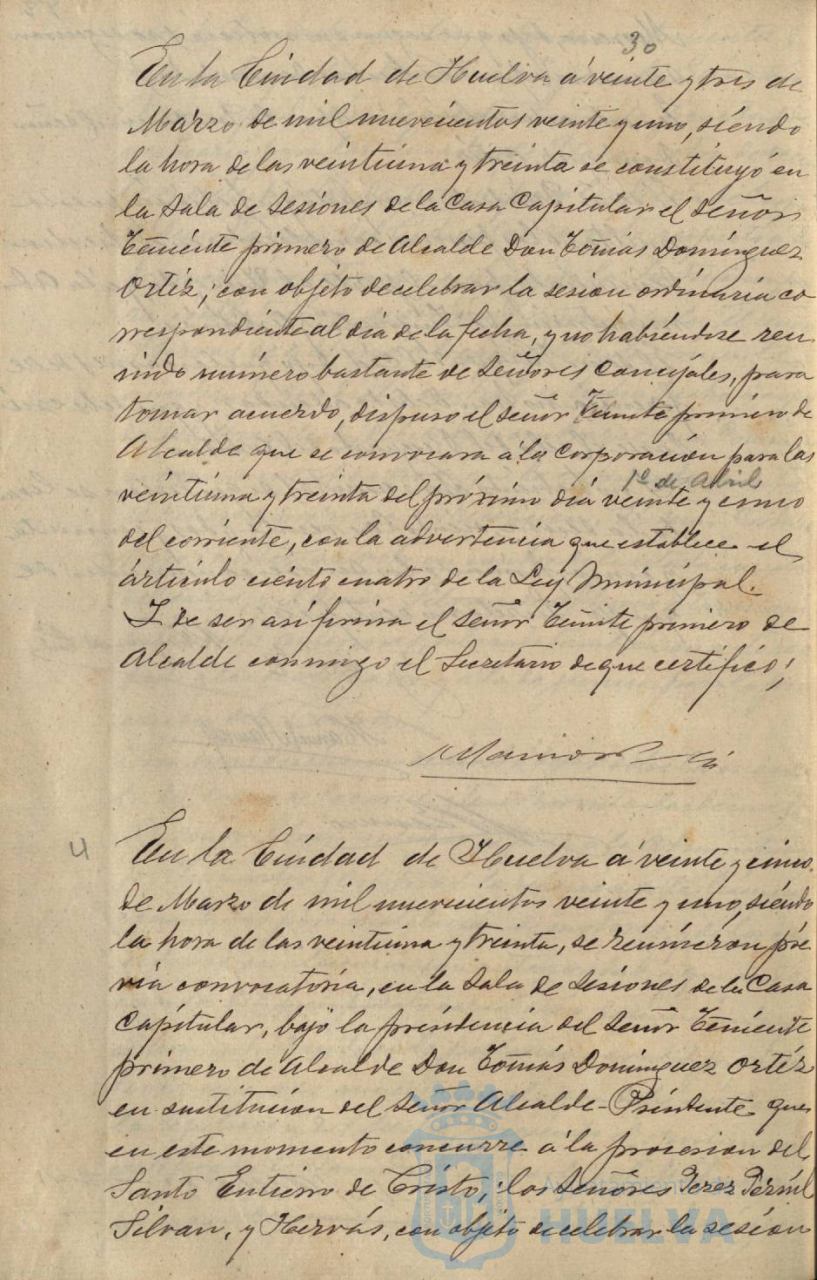 30
En la Ciudad de Huelva á veinte y tres de
Marzo de mil nuevecientos veinte y uno, siendo
la hora de las veintiuna y treinta se constituyó en
la Sala de Sesiones de la Casa Capitular el Señor
Teniente primero de Alcalde Don Tomás Domínguez
Ortíz; con objeto de celebrar la sesion ordinaria co
rrespondiente al dia de la fecha, y no habiéndose reu
nido número bastante de Señores Concejales, para
tomar acuerdo, dispuso el Señor Teniente primero de
Alcalde que se convocara á la Corporación para las
1º de Abril
veintiuna y treinta del próximo dia veinte y cinco
del corriente, con la advertencia que establece el
artículo ciento cuatro de la Ley Municipal.
Y de ser asi firma el Señor Teniente primero de
Alcalde conmigo el Secretario de que certifico;
4
En la Ciudad de Huelva á veinte y cinco
de Marzo de mil nuevecientos veinte y uno, siendo
la hora de las veintiuna y treinta, se reunieron pre
via convocatoria, en la Sala de Sesiones de la Casa
Capitular, bajo la presidencia del Señor Teniente
primero de Alcalde Don Tomás Domínguez Ortíz
en sustitucion del Señor Alcalde-Presidente que
en este momento concurre á la procesion del
Santo Entierro de Cristo; los Señores Perez
Silvan, y Hervás, con objeto de celebrar la sesión
HUELVA